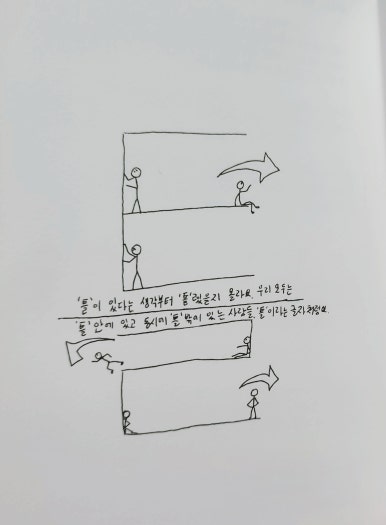 '틀'이 있다는 생각부터 '틀'렸을지 몰라요. 우리 모두는
'틀' 안에 있고 동시에 '틀' 밖에 있는 사람들. '틀'이라는 글자처럼요.